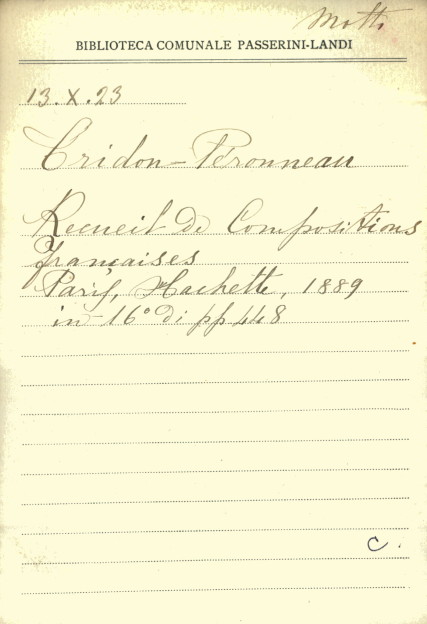 Motti
BIBLIOTECA COMUNALE PASSERINI-LANDI
13.X.23
Tridon-Péronneau
Recueil de Compositions
françaises
Paris, Hachette, 1889
in-16° di pp 448
C.